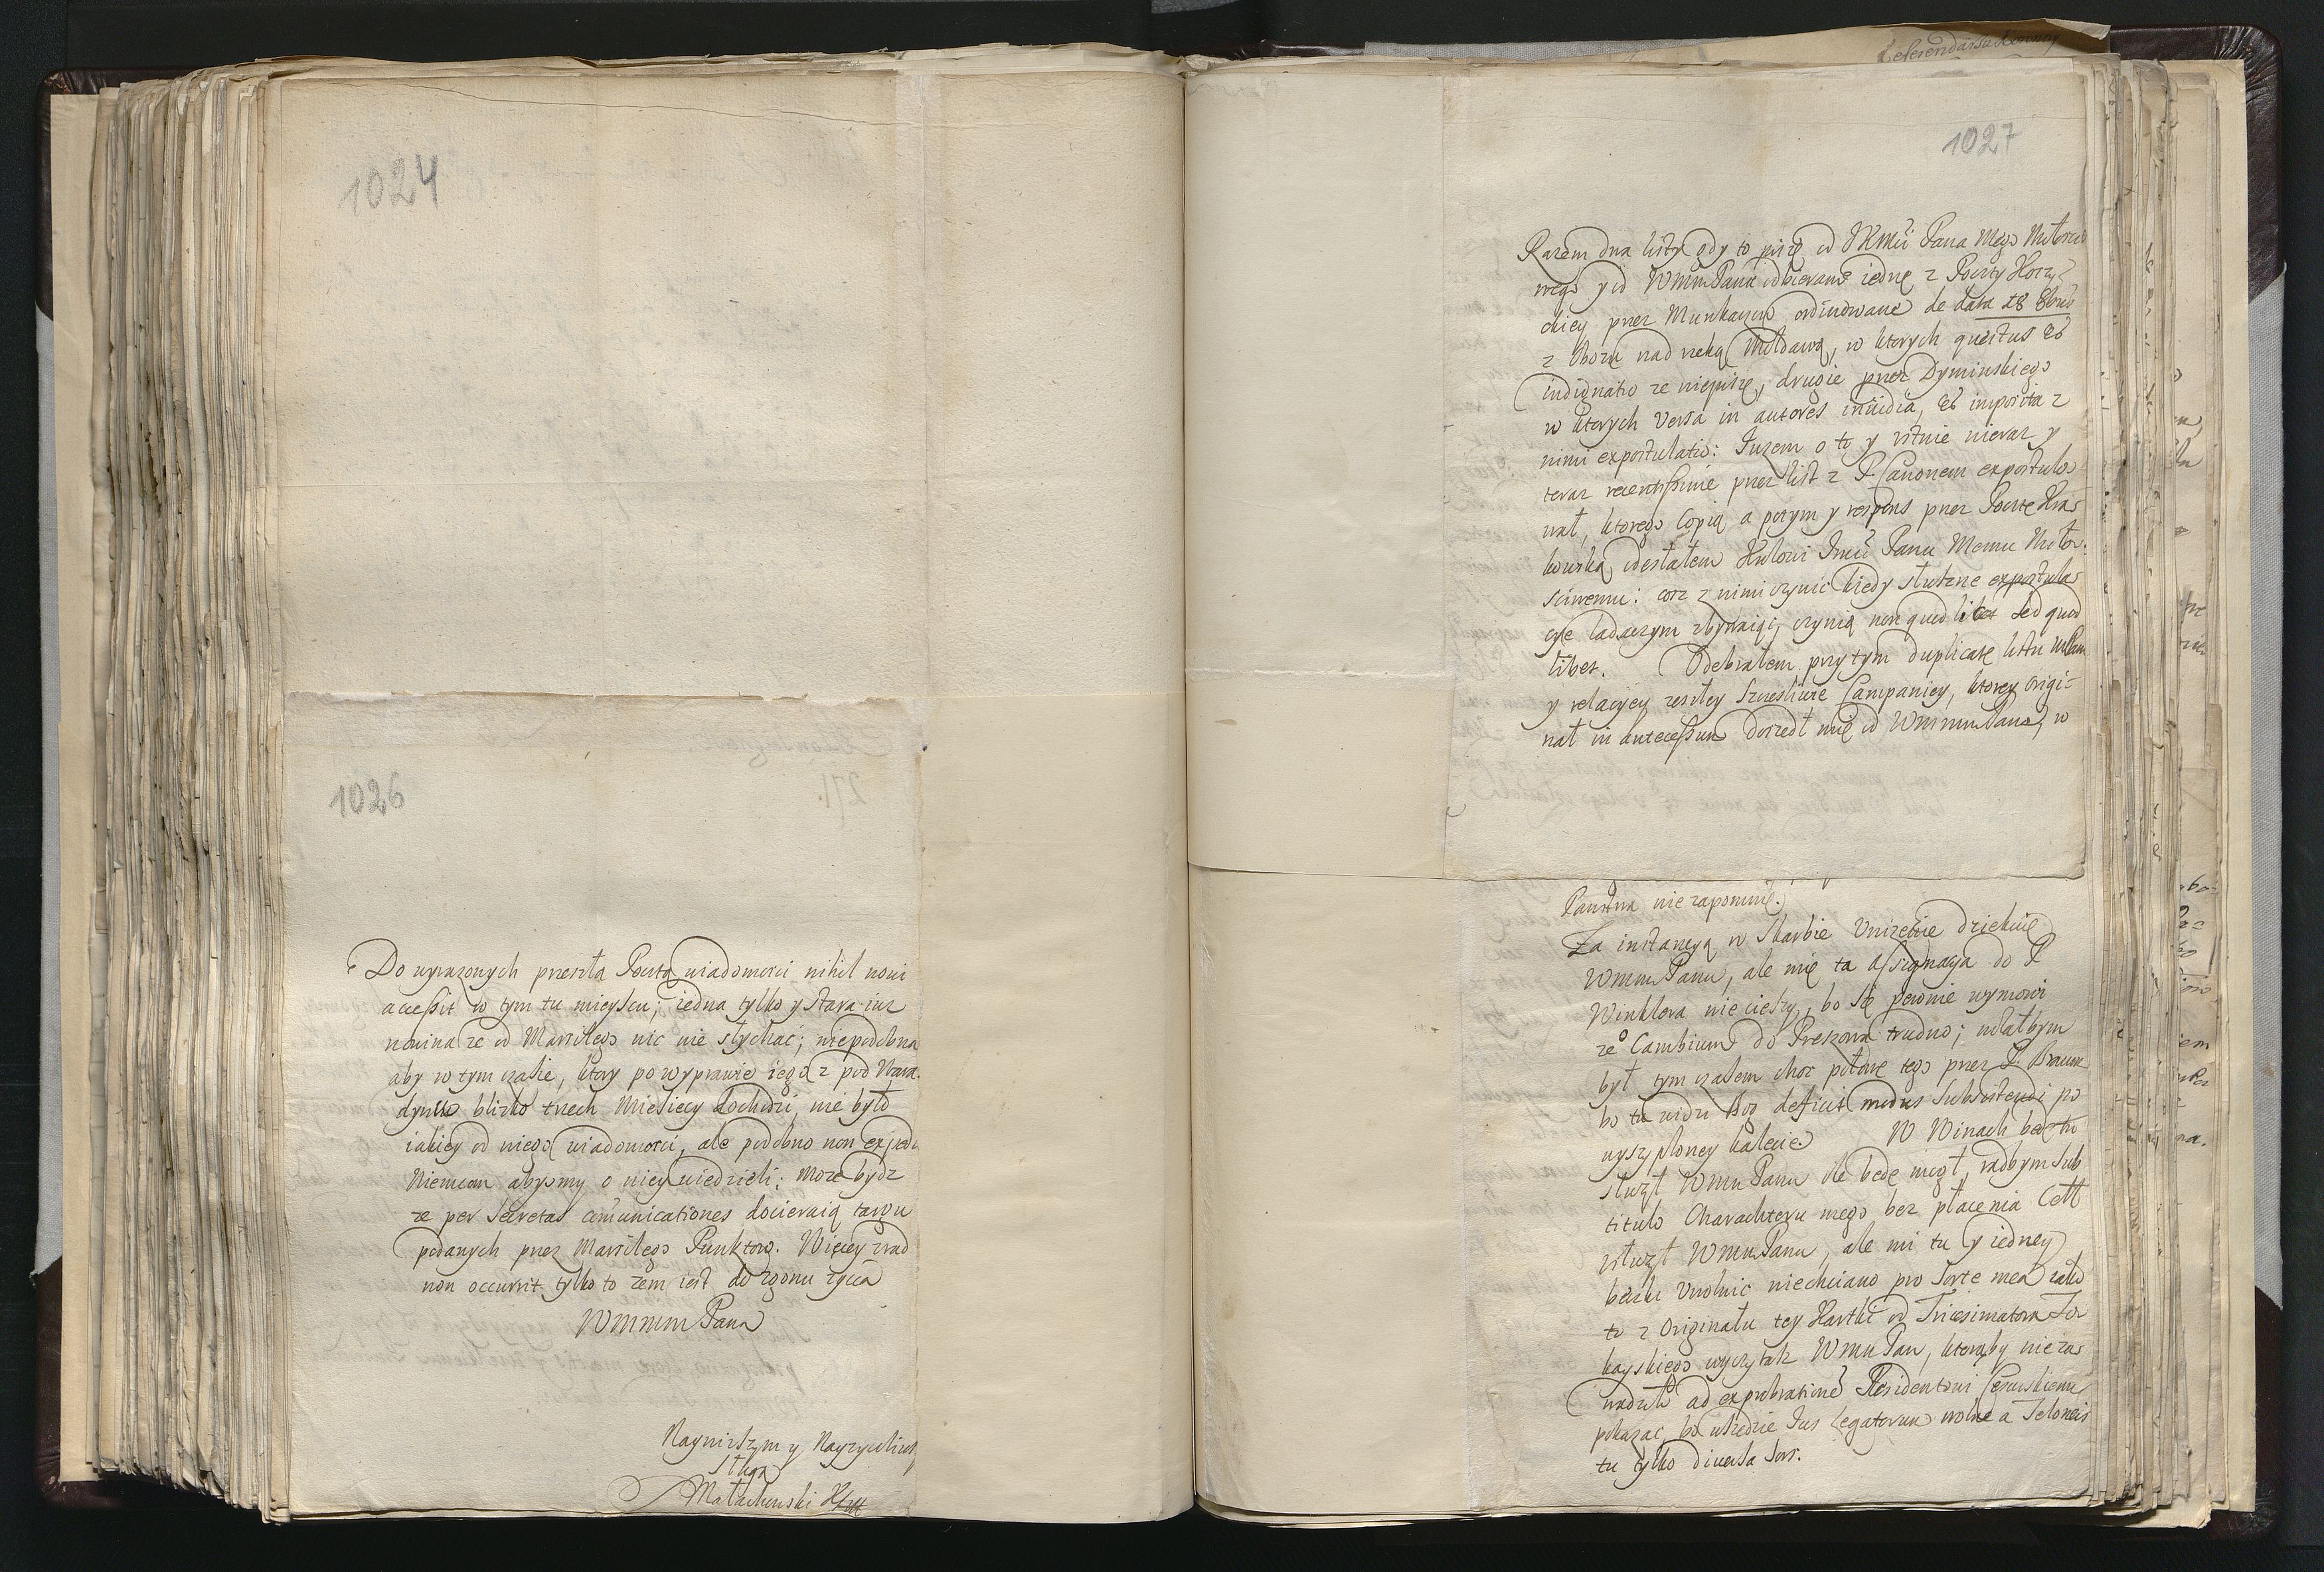 1024
1026
Do wyrazonych przeszła Pocztą wiadomości nihil novi
accessit w tym tu mieyscu; iedna tylko y stara iuż
nowina ze od Marsilego nic nie słychać; niepodobna
aby w tym czasie, ktory po wyprawie iego z pod
blizko trzech Miesięcy dochodzi, nie było
iakiey od niego wiadomości, ale podobno non
Niemcom abysmy o niey wiedzieli; może bydz
ze per secretas comunicationes docieraią targu
podanych przez Marsilego Punktow. Więcey
non occurrit tylko to żem iest do zgonu życia
WMMM Pana
Nayniższym y Nayzyczliwszym
Sługą
Małachowski
1027
Razem dwa listy gdy to piszę od JKMci Pana Mego Miłosci
wego y od WMM Pana odbieram iedne z Poczty
przez Munkaczow ordinowane de data 28 8bris
z Obozu nad rzeką Mołdawą, w ktorych questus et
indignatio ze niepiszę, drugie przez Dyminskiego
w ktorych versa in autores invidia, et imposita z
nimi expostulatio: Iużem o to y ustnie nieraz y
teraz recentissime przez list z P. Caronem expostulo
wał, ktorego Copią a potym y respons przez Pocztę Kra
kowską odesłałem Krolowi Jmci Panu Memu Miło
sciwemu: coż z nimi czynić kiedy słuszne expostula
cye ladaczym zbywaią, czynią non quod licet sed quod
libet. Odebrałem przy tym duplicatę listu WMPana
y relacyey zeszłey szczesliwie Campaniey, ktorey origi=
nał in antecessum doszedł mię od WMMM Pana, w
nie zapomnię.
Za instancyą w Skarbie Unizenie dziękuię
WMM Panu, ale mię ta Assignacya do P
Winklera nie cieszy, bo się pewnie wymowi
ze Cambium do Preszowa trudno; wolałbym
był tym czasem choc połowę tego przez P.
bo tu widzi Bog deficit modus subsistendi po
wyszyploney kalecie W Winach będę
służył WMM Panu ile będę mogł, radbym sub
titulo Charachteru mego bez płacenia Cełł
usłużył WMM Panu, ale mi tu y iedney
beczki Uwolnic niechciano pro sorte mea iako
to z Originału tey Kartki od Tricesimatora To
kayskiego wyczytasz WMM Pan, ktorąby nieza
wadziło ad exprobrationem Residentowi Cesarskiemu
pokazac, bo wszędzie Jus Legatorum wolne a Teloneis
tu tylko diversa sors.